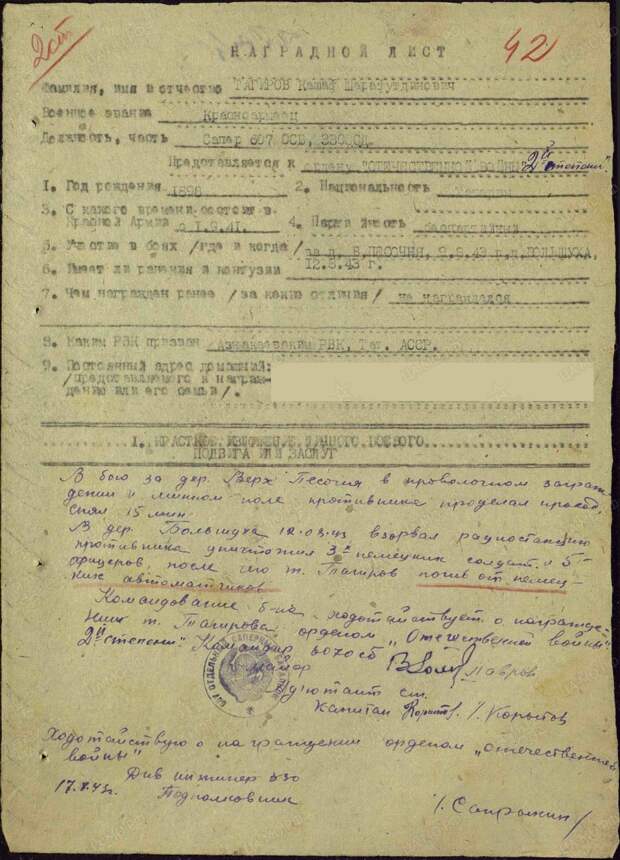 2 ст
НАГРАДНОЙ ЛИСТ
42
Фамилия, имя и отчество ТАГИРОВ Кашаф Шарафутдинович
Военное звание Красноармеец
Должность, часть Сапер 607 ОСБ,
Представляется к ордену "ОТЕЧЕСТВЕННОЙ ВОЙНЫ" 2й степени"
1. Год рождения 1898 2. Национальность
3. С какого времени состоит в
Красной Армии с 1.9.41. 4. Партийность беспартийный
5. Участие в боях /где и когда/ за д. В.ПЕСОЧНЯ, д.БОЛЬШУХА,
6. Имеет ли ранения и контузии 12.8.43 г.
7. Чем награжден ранее /за какие отличия/ не награждался
8. Каким РВК призван Азнакаевским РВК, Тат. АССР.
9. Постоянный адрес домашний:
/представляемого к награж-
дению или его семьи/.
1. КРАТКОЕ ИЗЛОЖЕНИЕ ЛИЧНОГО БОЕВОГО
ПОДВИГА ИЛИ ЗАСЛУГ
В бою за дер. Верх Песочня в проволочном заграж-
дении и минном поле противника проделал проход,
снял 15 мин.
В дер. Большуха 12.08.43 взорвал радиостанцию
противника уничтожил 3х немецких солдат и 5
офицеров, после чего т. Тагиров погиб от немец-
ких автоматчиков
Командование б-на ходатайствует о награжде-
нии т. Тагирова орденом "Отечественной войны"
2й степени". Командир 607 осб
майор Лавров
Адютант ст.
Капитан /. Корытов
Ходотайствую о награждении орденом "отечественной
войны"
Див инженер 330
17.8.43г. Подполковник